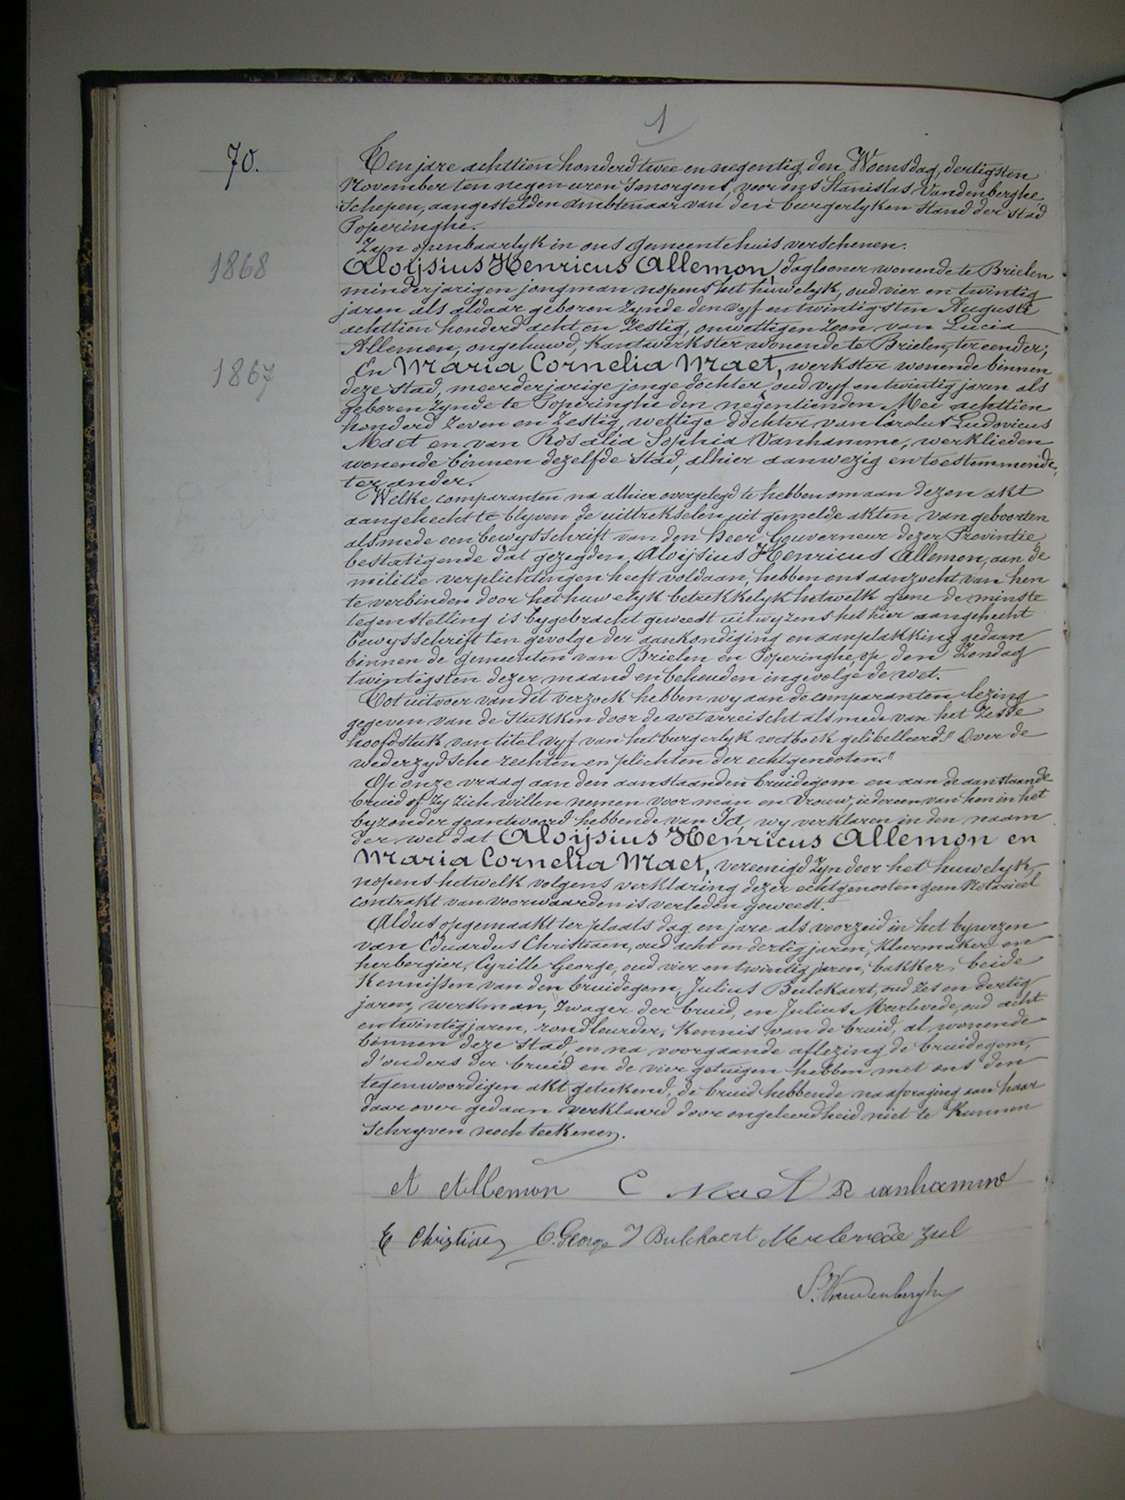 1
70.
Ten jare achttien honderd twee en negentig den Woensdag, dertigsten
November ten negen uren 's morgens, voor ons Stanislas Vandenberghe
Schepen, aangestelden ambtenaar van den burgerlyken stand der stad
Poperinghe.
Zyn openbaarlyk in ons gemeentehuis verschenen.
1868
Aloijsius Henricus Allemon, daglooner wonende te Brielen
minderjarigen jongman nopens het huwelyk, oud vier en twintig
jaren als aldaar geboren zynde den vyf en twintigsten Augusti
achttien honderd acht en zestig, onwettigen zoon van Lucia
Allemon, ongehuwd, kantwerkster wonende te Brielen, ter eender;
1867
En Maria Cornelia Maet, werkster wonende binnen
deze stad, meerderjarige jonge dochter, oud vyf en twintig jaren als
geboren zynde te Poperinghe den negentienden Mei achttien
honderd zeven en zestig, wettige dochter van Carolus Ludovicus
Maet en van Rosalia Sophia Vanhamme, werklieden
wonende binnen dezelfde stad, alhier aanwezig en toestemmende,
ter ander.
Welke comparanten na alhier overgelegd te hebben om aan dezen akt
aangehecht te blyven de uittrekselen uit gemelde akten van geboorten
alsmede een bewysschrift van den Heer Gouverneur dezer Provintie
bestatigende dat gezegden Aloijsius Henricus Allemon, aan de
militie verplichtingen heeft voldaan, hebben ons aanzocht van hen
te verbinden door het huwelyk betrekkelyk hetwelk geene de minste
tegenstelling is bygebracht geweest uitwyzens het hier aangehecht
bewysschrift ten gevolge der aankondiging en aanplakking gedaan
binnen de gemeenten van Brielen en Poperinghe, op den Zondag
twintigsten dezer maand en behouden ingevolge de wet.
Tot uitvoer van dit verzoek hebben wy aan de comparanten lezing
gegeven van de stukken door de wet vereischt als mede van het zesde
hoofdstuk van titel vyf van het burgerlyk wetboek gelibelleerd "Over de
wederzydsche rechten en plichten der echtgenooten."
Op onze vraag aan den aanstaanden bruidegom en aan de aanstaande
bruid of zy zich willen nemen voor man en vrouw, iedereen van hen in het
byzonder geantwoord hebbende van Ja, wy verklaren in den naam
der wet dat Aloijsius Henricus Allemon en
Maria Cornelia Maet, vereenigd zyn door het huwelyk
nopens hetwelk volgens verklaring dezer echtgenooten geen Notarieel
contrakt van voorwaarden is verleden geweest.
Aldus opgemaakt ter plaats dag en jare als voorzeid in het bywezen
van Eduardus Christiaen, oud acht en dertig jaren, kloermaker en
herbergier, Cyrille George, oud vier en twintig jaren, bakker, beide
kennissen van den bruidegom, Julius Bulckaert, oud zes en dertig
jaren, werkman, zwager der bruid, en Julius Merlevede, oud acht
en twintig jaren, rondleurder, kennis van de bruid, al wonende
binnen deze stad en na voorgaande aflezing de bruidegom,
d'ouders der bruid en de vier getuigen hebben met ons den
tegenwoordigen akt geteekend, de bruid hebbende na afvraging aan haar
daar over gedaan verklaard door ongeleerdheid niet te kunnen
schryven noch teekenen.
A Allemon C Maet R vanhamme
E Christiaen C. George J Bulckaert Merlevede Jul
S. Vandenberghe